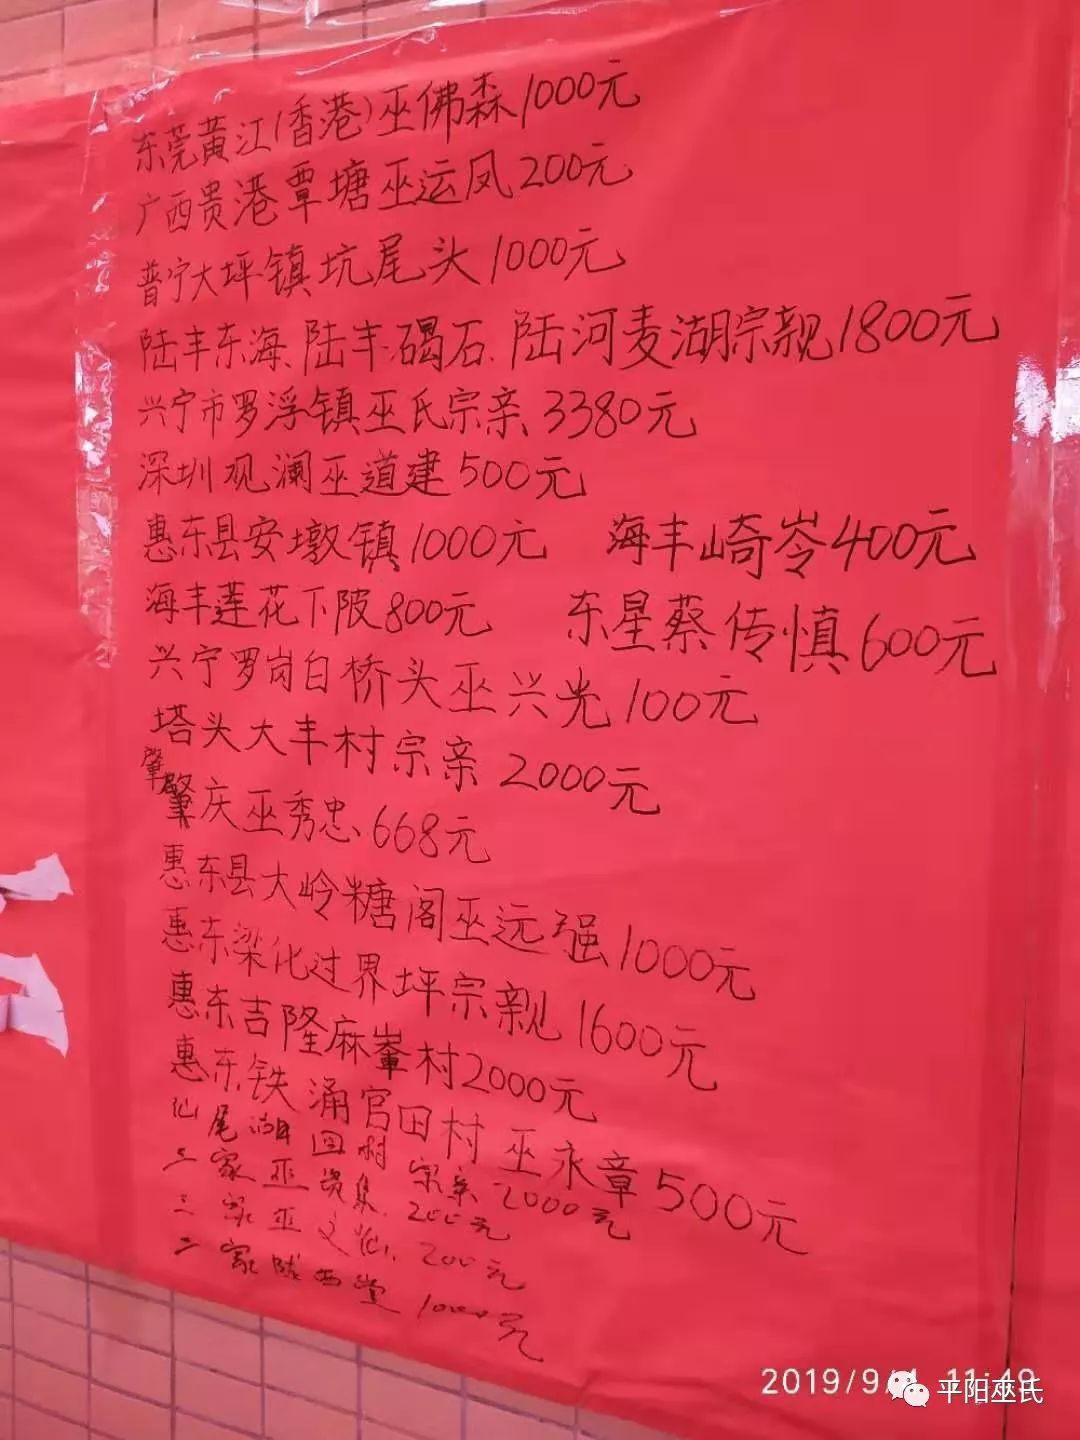 东莞黄江(香港)巫佛森1000元
广西贵港覃塘巫运凤200元
普宁大坪镇坑尾头1000元
陆丰东海、陆丰碣石、陆河麦湖宗親1800元
兴宁市罗浮镇巫氏宗亲3380元
深圳观澜巫道建500元
惠东县安墩镇1000元 海丰崎岺400元
海丰莲花下陂800元 东星蔡传慎600元
兴宁罗岗白桥头巫兴光100元
塔头大丰村宗亲2000元
肇庆巫秀忠668元
惠东县大岭糖阁巫远强1000元
惠东梁化过界坪宗親1600元
惠东吉隆麻峯村2000元
惠东铁涌官田村巫永章500元
仙尾湖回村宗亲2000元
家巫贤集200元
三家巫文仙200元
二家陇西堂1000元
2019/9/1 11:49
平阳巫氏